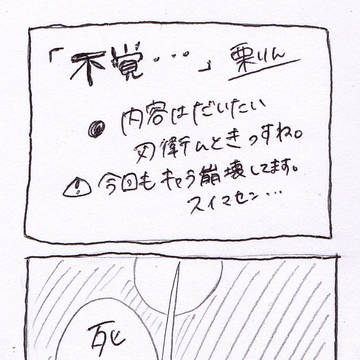 「不覚…」 栗りん
● 内容はだいたい
刃衛んときっすね。
⚠ 今回もキャラ崩壊してます。
スイマセン…
死